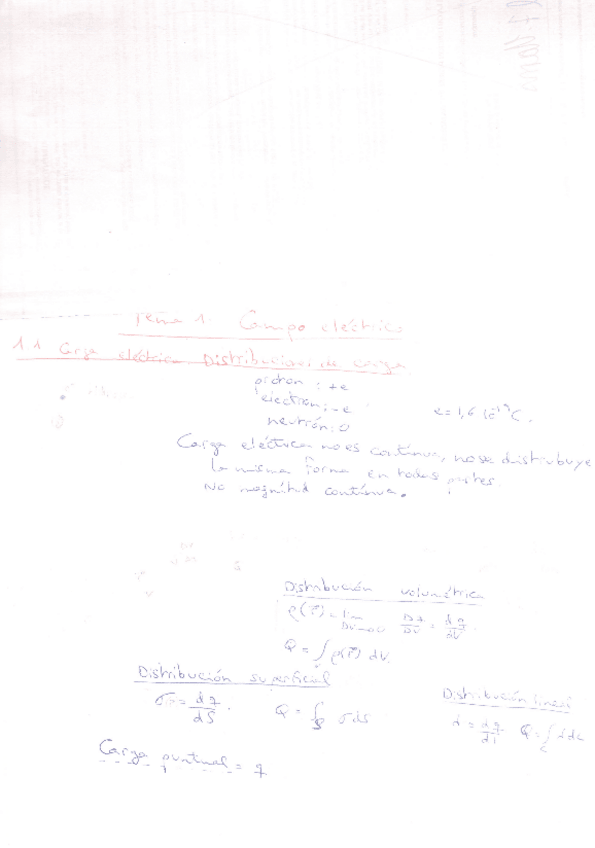 Tema 1. Campo eléctrico
1.1 Carga eléctrica. Distribuciones de carga
protón: +e
electrón: -e
e = 1,6 10⁻¹⁹ C.
neutrón: 0
Carga eléctrica no es contínua, no se distribuye
la misma forma en todas partes.
No magnitud contínua.
Distribución volumétrica
ρ(r⃗) = lim ΔV→0 Δq/ΔV = dq/dV.
Q = ∫ ρ(r⃗) dV.
Distribución superficial
σ = dq/dS. Q = ∫S σ dS
Distribución lineal
λ = dq/dl Q = ∫C λ dl
Carga puntual = q